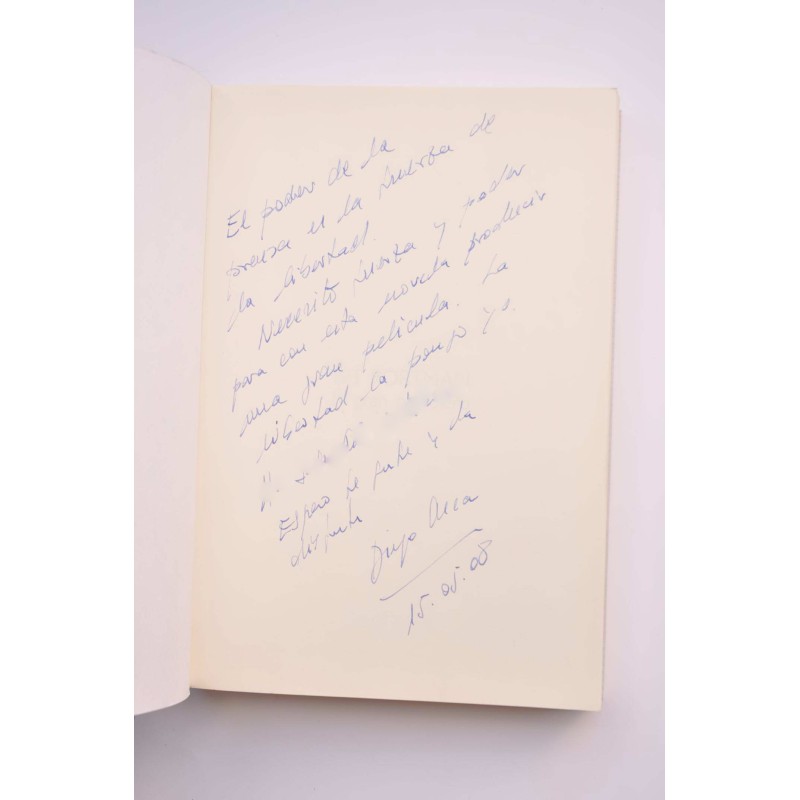 El poder de la
prensa es la fuerza de
la libertad.
Necesito fuerza y poder
para con esta novela producir
una gran película. La
libertad la pongo yo.
Espero te guste y la
disfrute
Diego
15.05.08